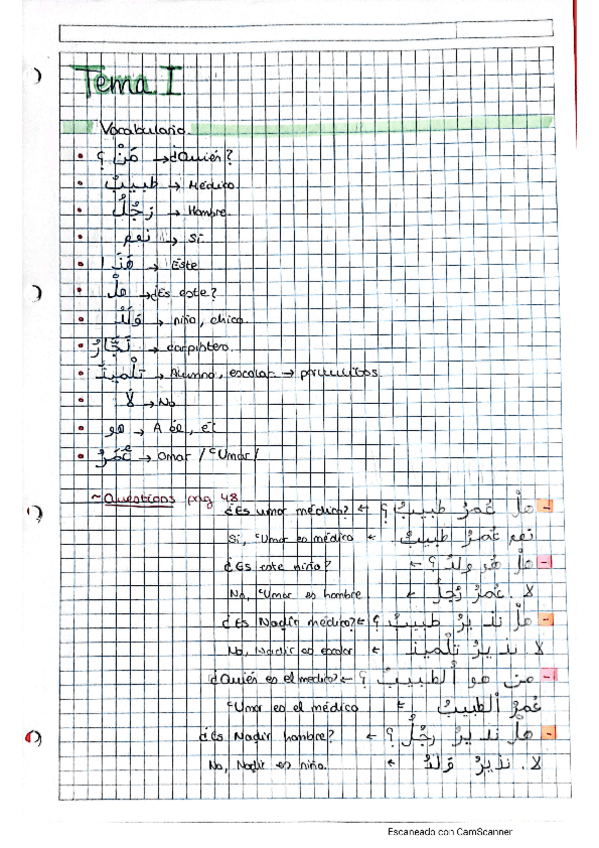 Tema I
Vocabulario.
• مَنْ ؟ → ¿Quién?
• طبيبٌ → Médico.
• رَجُلٌ → Hombre.
• نعم → Sí
• هَذَا → Este
• هلْ → ¿Es este?
• وَلَدٌ → niño, chico.
• نَجَّارٌ → carpintero.
• تلْميذٌ → Alumno, escolar →
• لَا → No
• هو → A él, él
• عُمَرُ → Omar / ᶜUmar/
~ Questions pag 48
- هلْ عُمرُ طبيبٌ ؟ ← ¿Es umar médico?
نعم عُمرُ طبيبٌ ← Sí, ᶜUmar es médico
- هلْ هُو ولدٌ ؟ ← ¿Es este niño?
لا. عُمرُ رَجُلٌ ← No, ᶜUmar es hombre
- هلْ نذيرُ طبيبٌ ؟ ← ¿Es Nadir médico?
لا. نذيرُ تلْميذٌ ← No, Nadir es escolar
- من هو ألطبيبُ ؟ ← ¿Quién es el medico?
عُمرُ ألطبيبُ ← ᶜUmar es el médico
- هلْ نذيرُ رجُلٌ ؟ ← ¿Es Nadir hombre?
لا. نذيرُ وَلدٌ ← No, Nadir es niño.
Escaneado con CamScanner